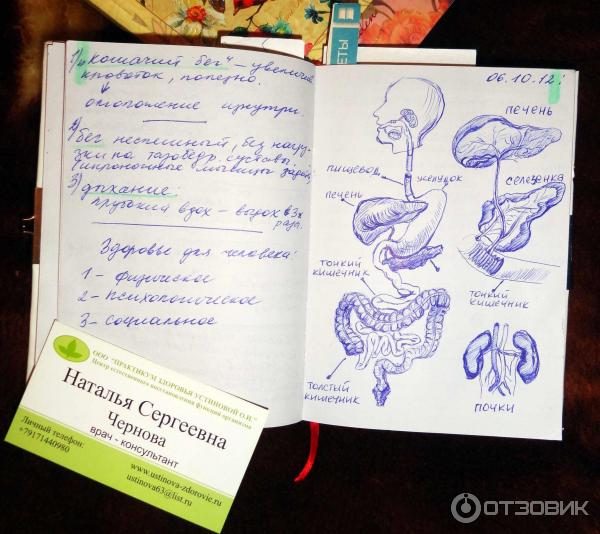 1) "кошачий бег" – увеличив.
кровоток, полезно.
омоложение изнутри.
2) бег неспешный, без нагру-
зки на тазобедр. суставы.
3) дыхание:
глубокий вдох – выдох в 3
раза.
Здоровье для человека:
1 - физическое
2 - психологическое
3 - социальное
ООО "ПРАКТИКУМ ЗДОРОВЬЯ УСТИНОВОЙ О.И."
Центр естественного восстановления функций организма
Наталья Сергеевна
Чернова
врач - консультант
Личный телефон:
+79171440980
www.ustinova-zdorovie.ru
ustinova63@list.ru
ЕТЫ
06.10.12г.
ПЕЧЕНЬ
ПИЩЕВОД
ЖЕЛУДОК
СЕЛЕЗЕНКА
ПЕЧЕНЬ
ТОНКИЙ
КИШЕЧНИК
ТОНКИЙ
КИШЕЧНИК
ТОЛСТЫЙ
КИШЕЧНИК
ПОЧКИ
ОТЗОВИК